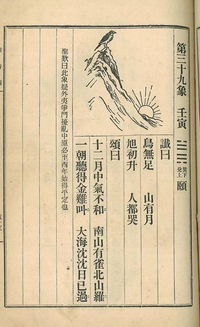 第三十九象 壬寅 ䷚ 頤
讖曰
鳥無足 山有月
旭初升 人都哭
頌曰
十二月中氣不和 南山有雀北山羅
一朝聽得金雞叫 大海沈沈日已過
聖歎曰此象疑外夷爭鬥擾亂中原必至酉年始得平定也